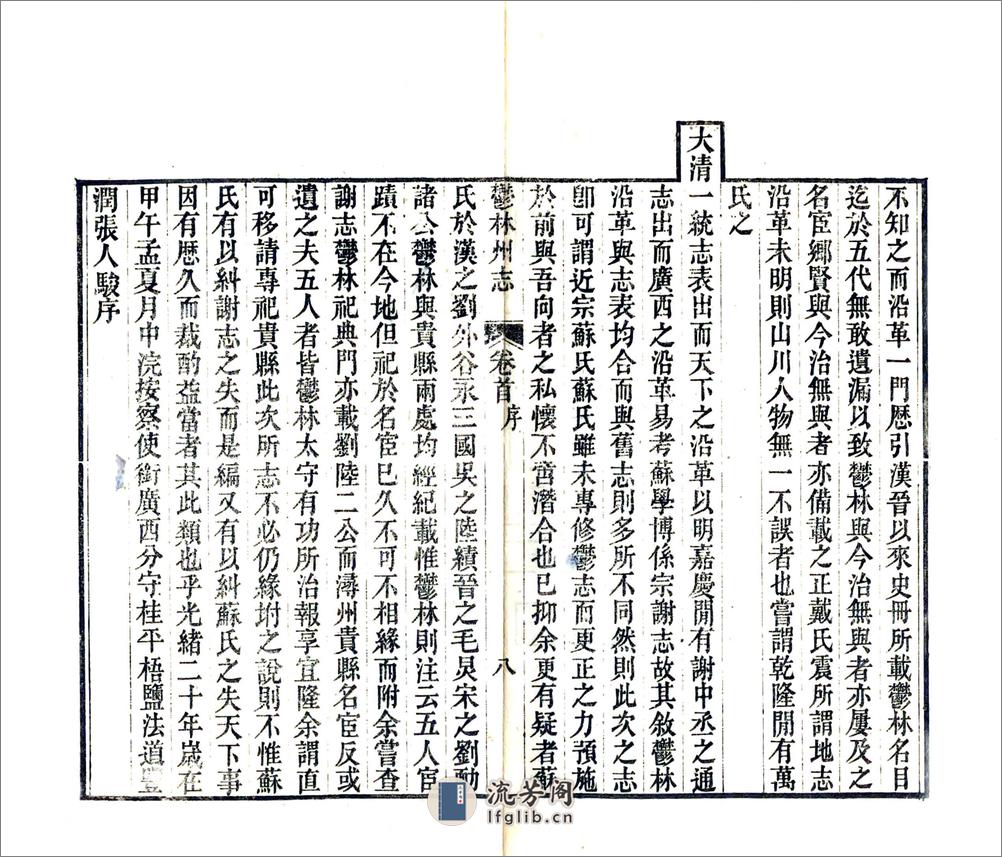 不知之而沿革一門歷引漢晉以來史冊所載鬱林名目
迄於五代無敢遺漏以致鬱林與今治無與者亦屢及之
名宦鄉賢與今治無與者亦備載之正戴氏震所謂地志
沿革未明則山川人物無一不誤者也嘗謂乾隆閒有萬
氏之
大清一統志表出而天下之沿革以明嘉慶閒有謝中丞之通
志出而廣西之沿革易考蘇學博係宗謝志故其敘鬱林
沿革與志表均合而與舊志則多所不同然則此次之志
卽可謂近宗蘇氏蘇氏雖未專修鬱志而更正之力預施
於前與吾向者之私懷不啻潛合也已抑余更有疑者蘇
鬱林州志
卷首
序
八
氏於漢之劉外谷永三國吳之陸績晉之毛炅宋之劉勔
諸公鬱林與貴縣兩處均經紀載惟鬱林則注云五人宦
蹟不在今地但祀於名宦已久不可不相緣而附余嘗查
謝志鬱林祀典門亦載劉陸二公而潯州貴縣名宦反或
遺之夫五人者皆鬱林太守有功所治報享宜隆余謂直
可移請專祀貴縣此次所志不必仍緣坿之說則不惟蘇
氏有以糾謝志之失而是編又有以糾蘇氏之失天下事
因有歷久而裁酌益當者其此類也乎光緒二十年歲在
甲午孟夏月中浣按察使銜廣西分守桂平梧鹽法道豐
潤張人駿序
流芳阁
lfglib.cn